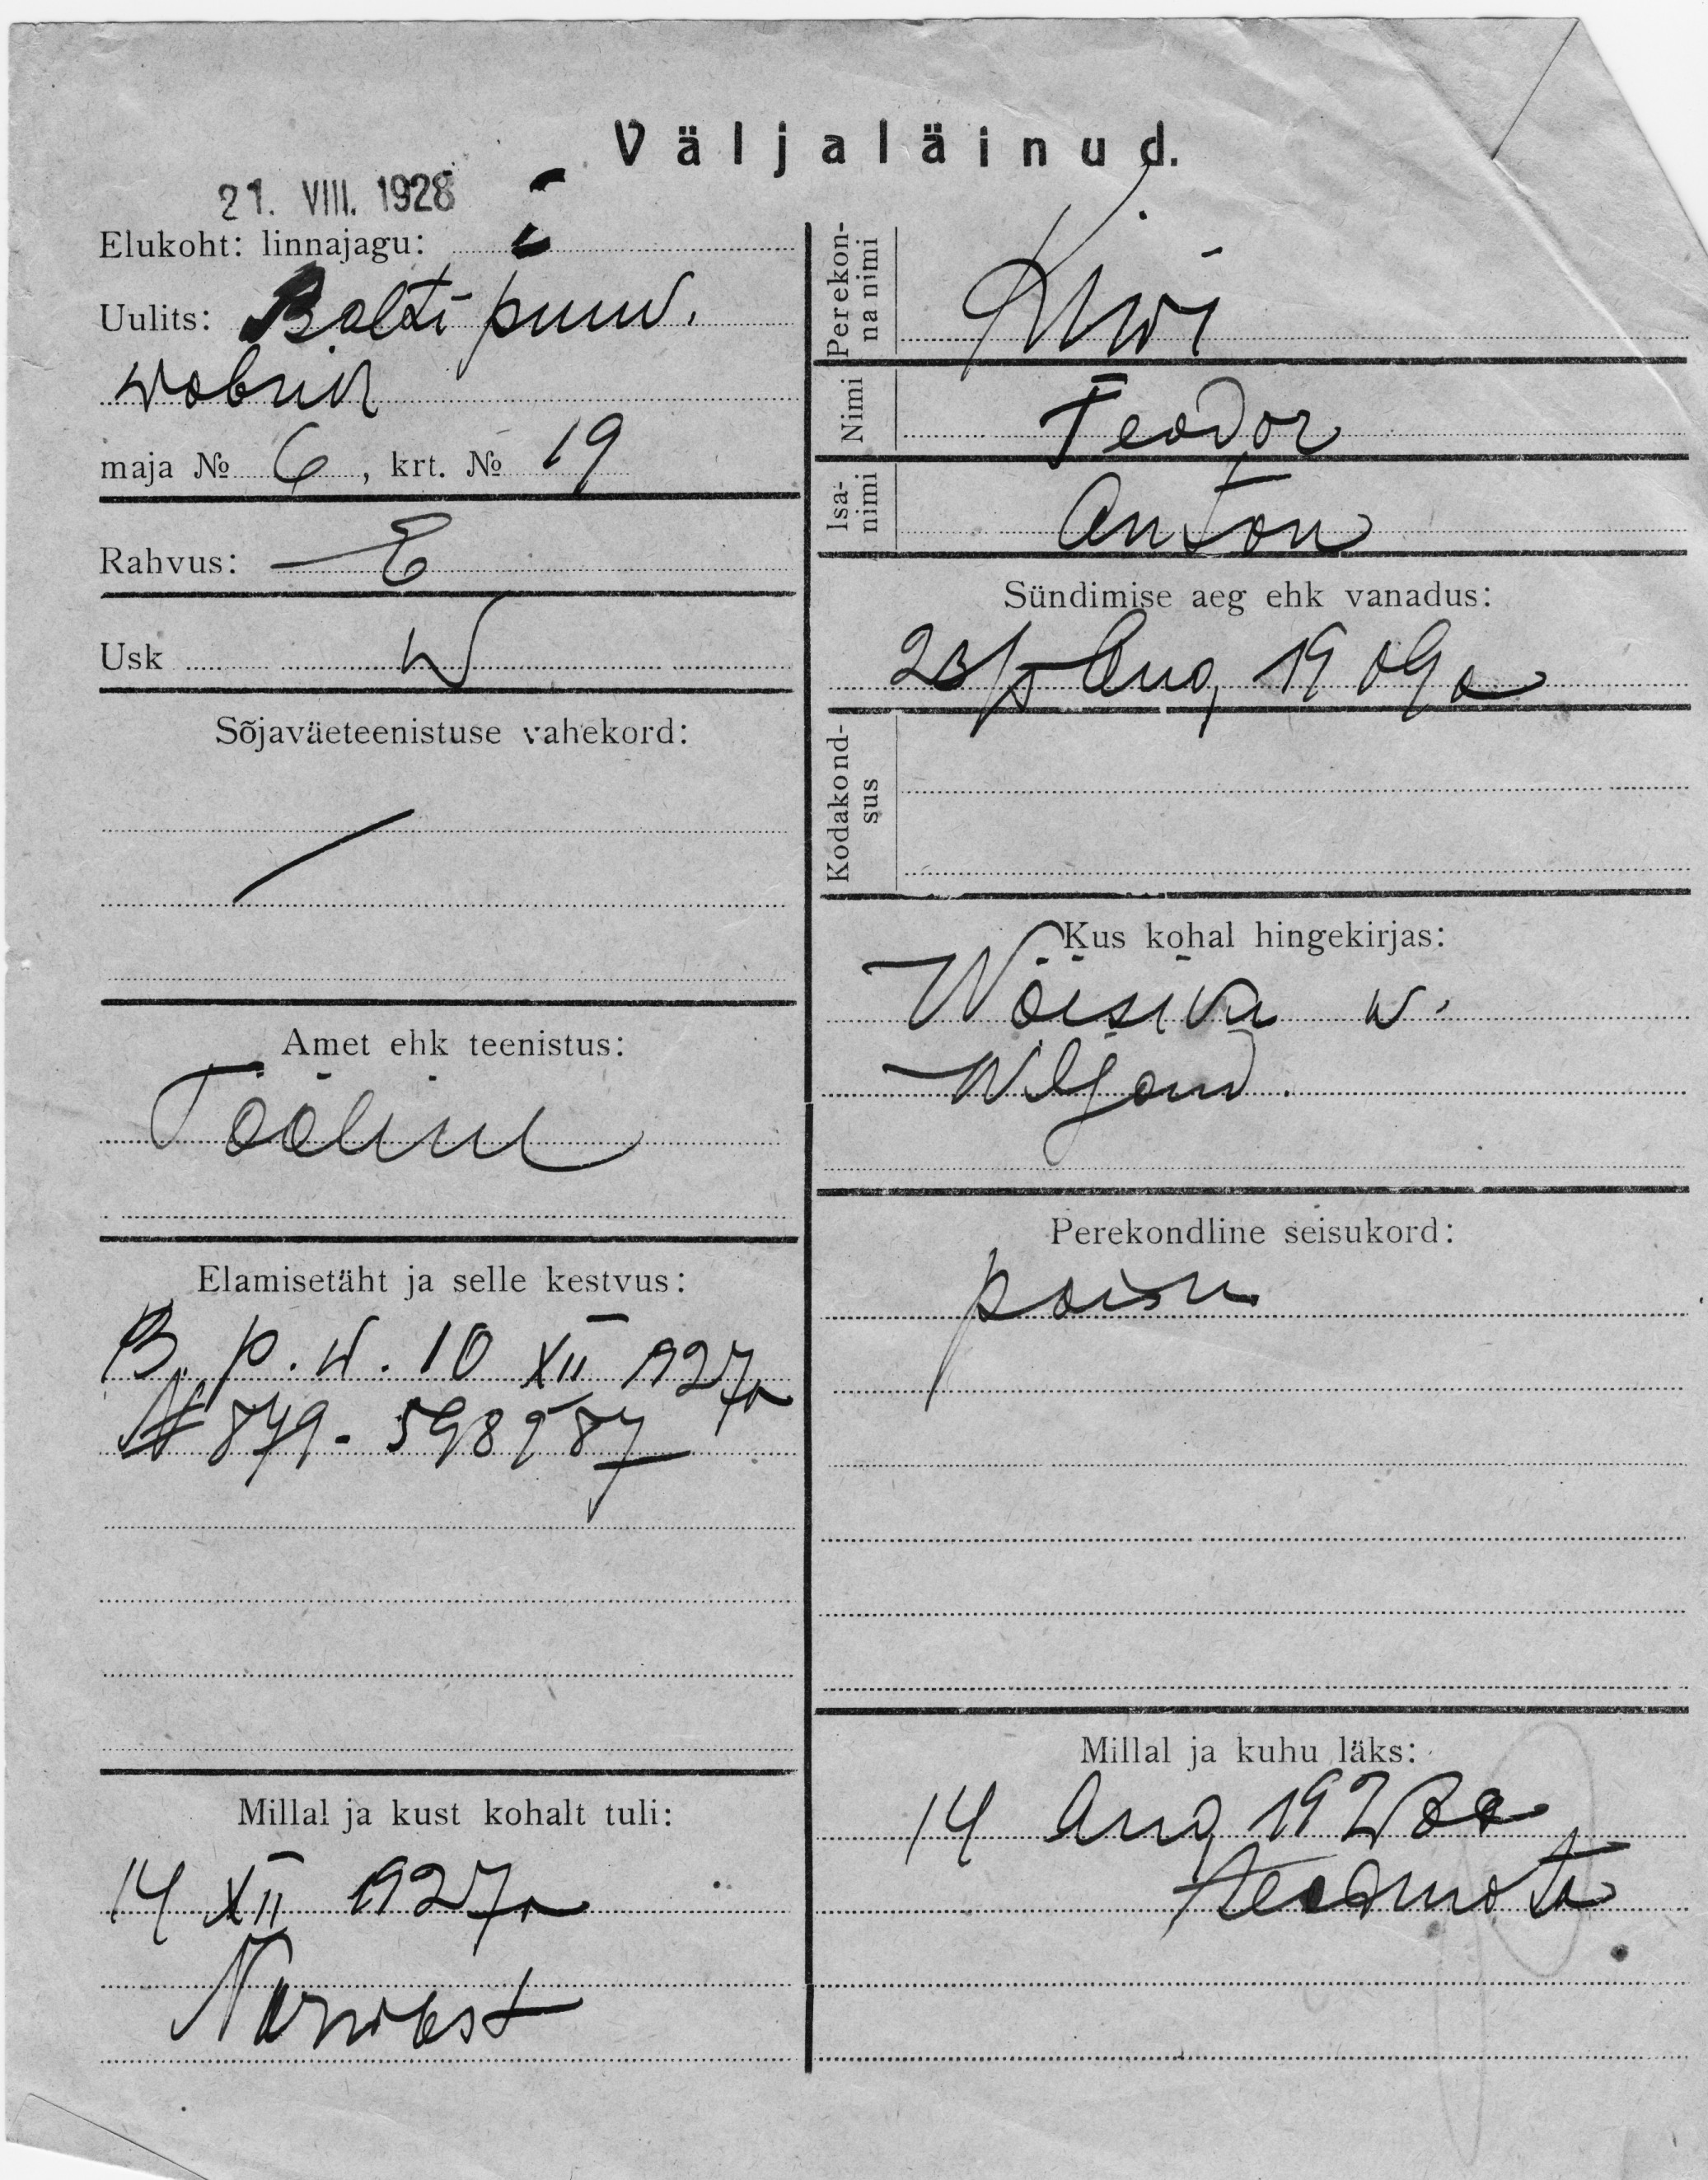 Väljaläinud.
21. VIII. 1928
Elukoht: linnajagu: I
Uulits: Balti puuw.
wabrik
maja № 6, krt. № 19
Rahvus: E
Usk W
Sõjaväeteenistuse vahekord:
Amet ehk teenistus:
Tööline
Elamisetäht ja selle kestvus:
B. p. w. 10 XII 1927a
№ 879 - 598987
Millal ja kust kohalt tuli:
14 XII 1927a
Narvast
Perekonna nimi
Kiwi
Nimi
Teodor
Isanimi
Anton
Sündimise aeg ehk vanadus:
Aug, 1909a
Kodakondsus
Kus kohal hingekirjas:
Wõisiku w.
Wiljand.
Perekondline seisukord:
Millal ja kuhu läks:
14 Aug, 1928a
teadmata